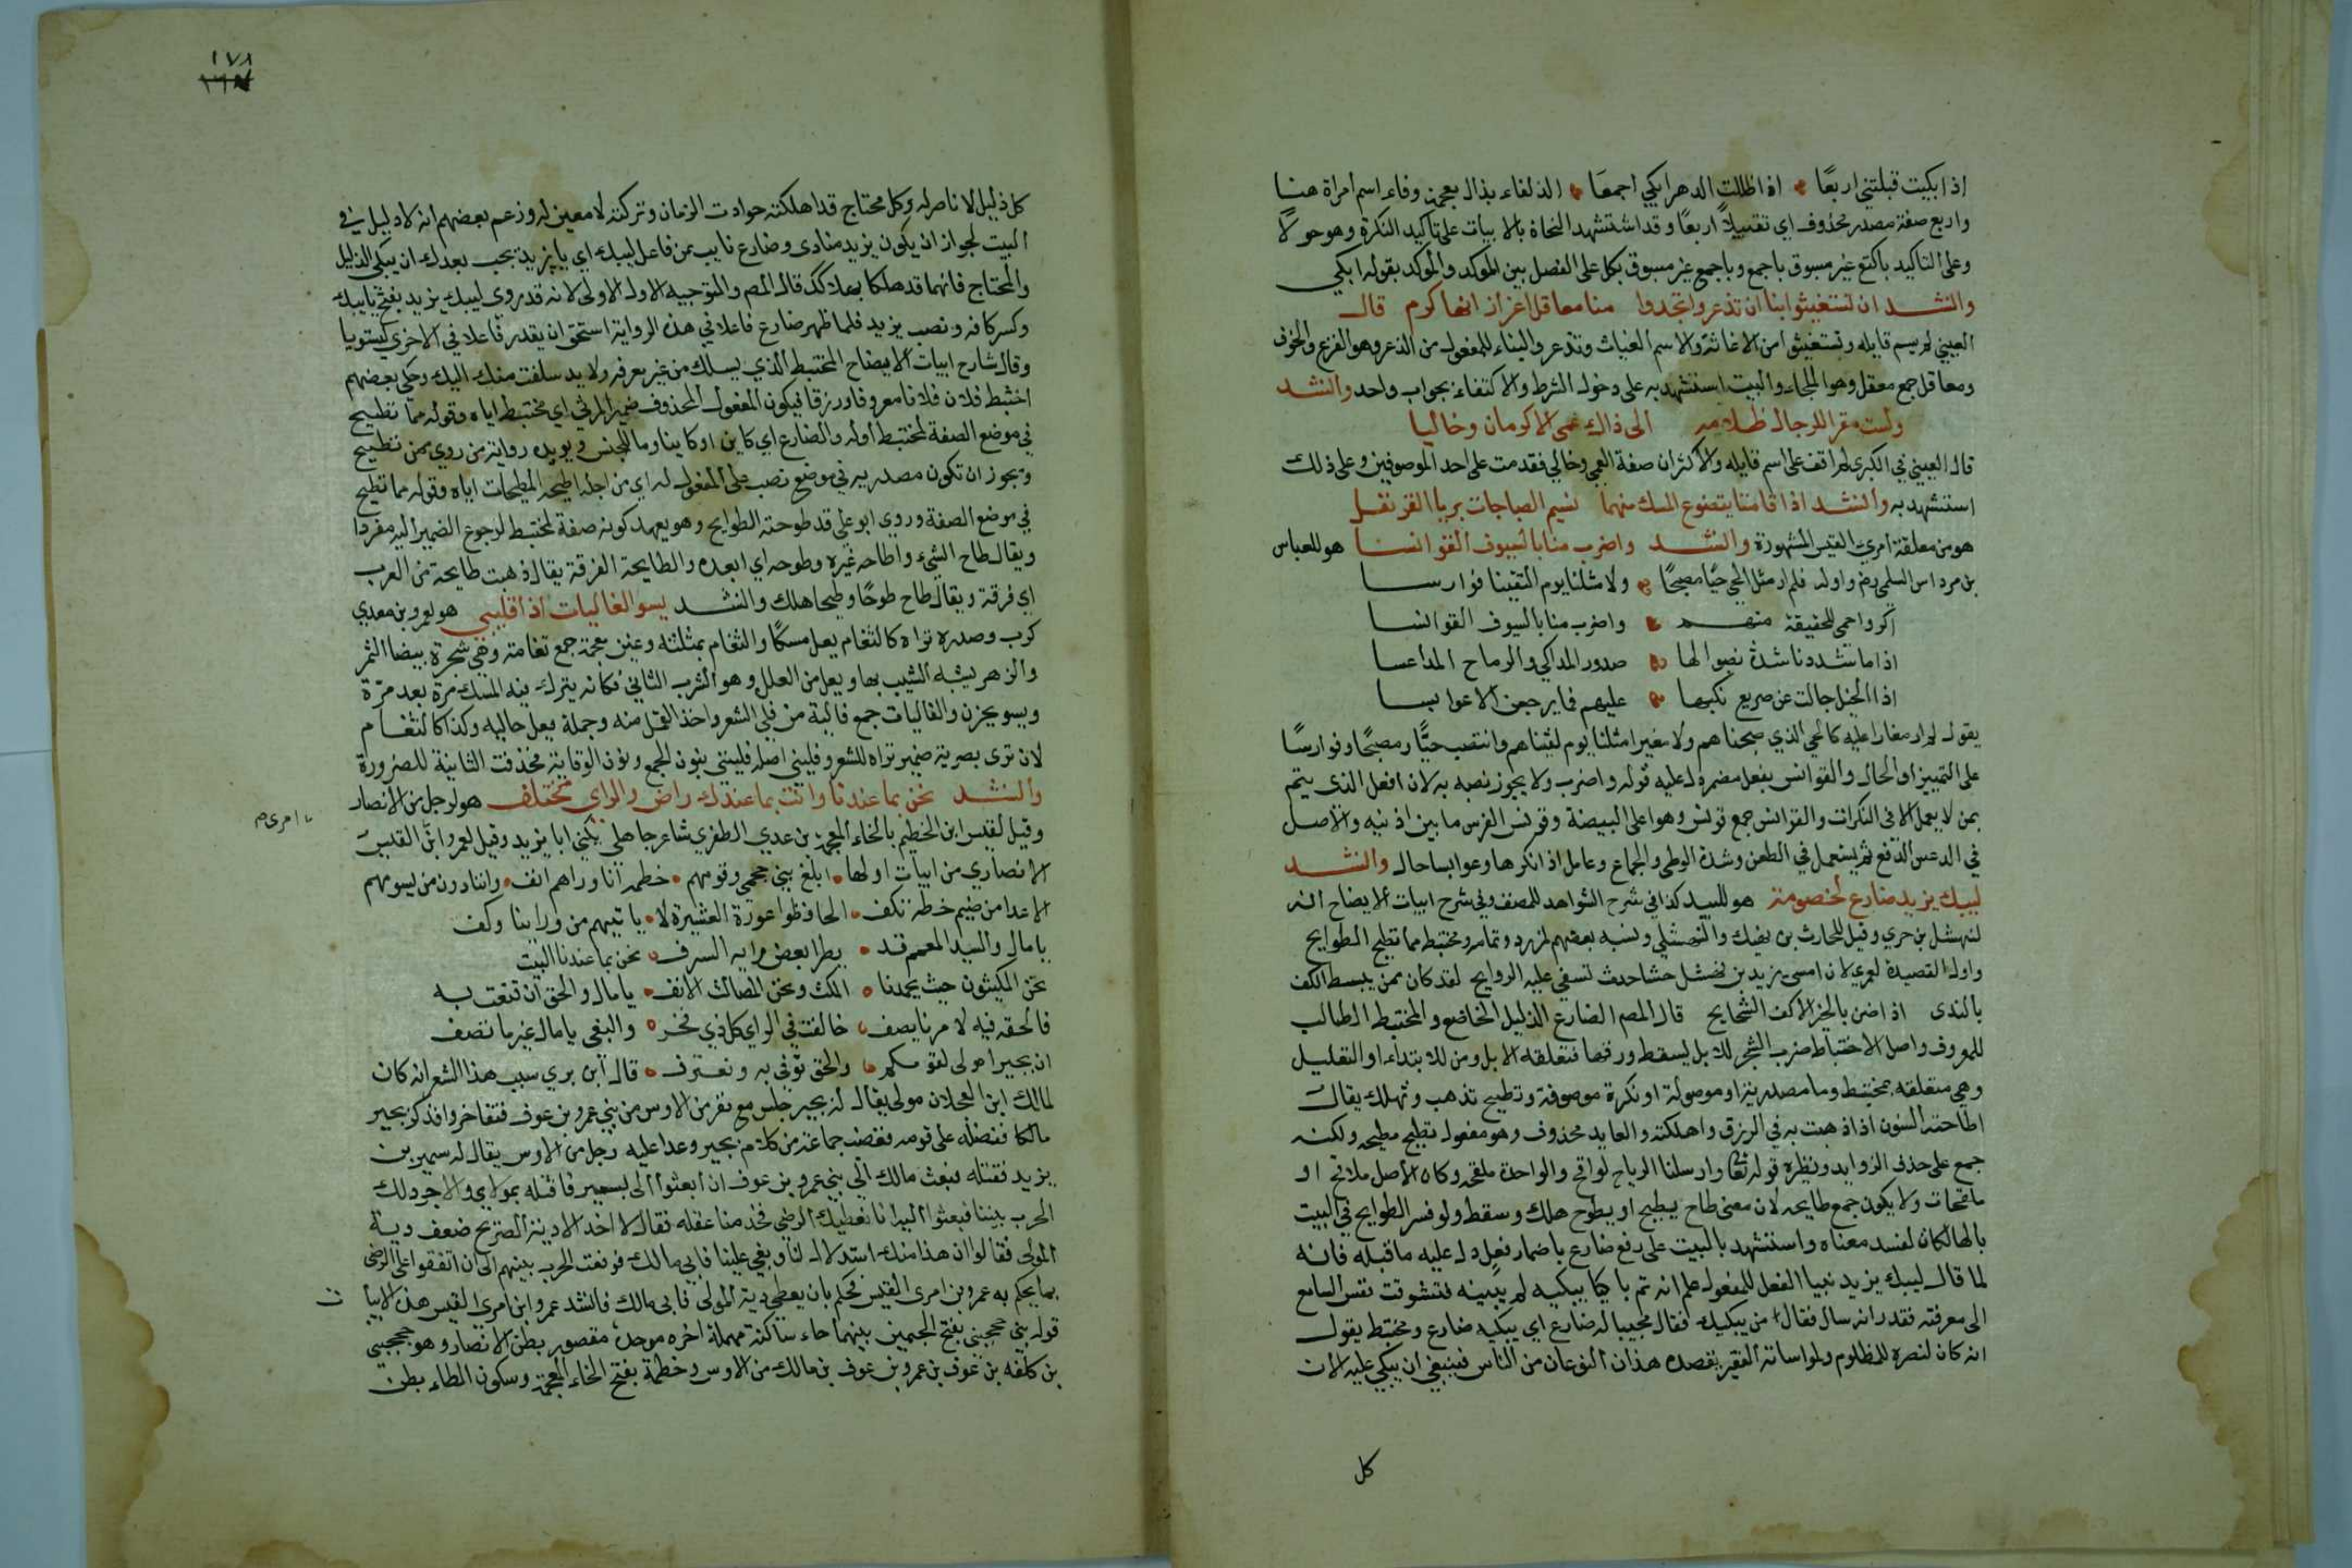 اذا بكيت قبلتني اربعًا اذا ظللت الدهر ابكي اجمعَا الذلفاء بذال معجمة وفاء اسم امراة هنا
واربع صفة مصدر محذوف اي تقبيلاً اربعًا وقد استشهد النحاة بالابيات على تاكيد النكرة وهو حولاً
وعلى التاكيد باكتع غير مسبوق باجمع وباجمع غير مسبوق بكل على الفصل بين الموكد والموكد بقوله ابكي
وانشد ان تستغيثوا بنا ان تذعروا تجدوا منا معاقل عز زانها كرم قال
العيني لم يسم قايله وتستغيثوا من الاغاثة والاسم الغياث وتذعروا بالبناء للمفعول من الذعر وهو الفزع والخوف
ومعاقل جمع معقل وهو الملجاء والبيت استشهد به على دخول الشرط والاكتفاء بجواب واحد وانشد
ولست مقرا للرجال ظلامه الى ذاك عمي الاكرمان وخاليا
قال العيني في الكبرى لم اقف على اسم قايله والاكرمان صفة العمي وخالي فقدمت على احد الموصوفين وعلى ذلك
استشهد به وانشد اذا قامتا يتضوع المسك منهما نسيم الصبا جات بريا القرنفل
هو من معلقة امرئ القيس المشهورة وانشد واضرب منا بالسيوف القوانسا هو للعباس
بن مرداس السلمي رض واوله فلم ار مثل الحي حيًا مصبحًا ولا مثلنا يوم التقينا فوارسا
اكر واحمى للحقيقة منهم واضرب منا بالسيوف القوانسا
اذا ما شددنا شدة نصبوا لها صدور المذاكي والرماح المداعسا
اذا الخيل جالت عن صريع نكبها عليهم فما يرجعن الا عوابسا
يقول لم ار مغارا عليه كالحي الذي صبحناهم ولا مغيرا مثلنا يوم لقيناهم وانتصب حيًّا ومصبحًا وفوارسًا
على التمييز او الحال والقوانس بفعل مضمر دل عليه قوله واضرب ولا يجوز نصبه به لان افعل الذي يتم
بمن لا يعمل الا في النكرات والقوانس جمع قونس وهو اعلى البيضة وقونس الفرس ما بين اذنيه والاصل
في الدعس الدفع ثم يستعمل في الطعن وشدة الوطي والجماع وعامل اذا نكرها وعوابسا حال وانشد
ليبك يزيد ضارع لخصومة هو للبيد كذا في شرح الشواهد للمصنف وفي شرح ابيات الايضاح انه
لنهشل بن حري وقيل للحارث بن نهيك والنهشلي ونسبه بعضهم لمزرد وتمامه ومختبط مما تطيح الطوايح
واول القصيدة لعمري لان امسى يزيد بن نهشل حشا جدث تسفي عليه الروايح لقد كان ممن يبسط الكف
بالندى اذا ضن بالخير الاكف الشحايح قال المص الضارع الذليل الخاضع والمختبط الطالب
للمعروف واصل الاختباط ضرب الشجر للابل ليسقط ورقها فتعلفه الابل ومن للابتداء او التعليل
وهي متعلقه بمختبط وما مصدرية او موصولة او نكرة موصوفة وتطيح تذهب وتهلك يقال
اطاحته السنون اذا ذهبت به في الرزق واهلكته والعايد محذوف وهو مفعول تطيح مطيحه ولكنه
جمع على حذف الزوايد ونظيره قوله تعالى وارسلنا الرياح لواقح والواحدة ملقحه وكان الاصل ملاقح او
ملقحات ولا يكون جمع طايحه لان معنى طاح يطيح او يطوح هلك وسقط ولو فسر الطوايح في البيت
بالهالكان لفسد معناه واستشهد بالبيت على رفع ضارع باضمار فعل دل عليه ما قبله فانه
لما قال ليبك يزيد نبيا الفعل للمفعول علم انه ثم باكيا يبكيه لم يبينه فتشوقت نفس السامع
الى معرفته فقدر انه سال فقال من يبكيه فقال مجيبا له ضارع اي يبكيه ضارع ومختبط يقول
انه كان لنصرة المظلوم ولمواساته الفقير يقصده هذان النوعان من الناس فينبغي ان يبكي عليه الان
كل
١٧٨
كل ذليل لا ناصر له وكل محتاج قد اهلكته حوادث الزمان وتركته لا معين له وزعم بعضهم انه لا دليل في
البيت لجواز ان يكون يزيد منادى وضارع نايب عن فاعل ليبك اي يا يزيد يجب بعدك ان يبكى الذليل
والمحتاج فانهما قد هلكا بهلاكك قال المص والتوجيه الاول الاولى لانه قد روي ليبك يزيد بفتح يا يبك
وكسر كافه ونصب يزيد فلما ظهر ضارع فاعلا في هذه الرواية استحق ان يقدر فاعلا في الاخرى ليستويا
وقال شارح ابيات الايضاح المختبط الذي يسلك من غير معرفه ولا يد سلفت منك اليك وحكي بعضهم
اختبط فلان فلانا معروفا ورزقا فيكون المفعول المحذوف ضمير المرثي اي مختبط اياه وقوله مما تطيح
في موضع الصفة لمختبط اوله والضارع اي كاين او كاينا وما للجنس ويويده رواية من روى ممن تطيح
ويجوز ان تكون مصدريه في موضع نصب على المفعول له اي من اجل اطيحة المطيحات اياه وقوله مما تطيح
في موضع الصفة وروي ابو علي قد طوحته الطوايح وهو يعهد كونه صفة لمختبط لرجوع الضمير اليه مفردا
ويقال طاح الشيء واطاحه غيره وطوحه اي ابعده والطايحة الفرقة يقال ذهبت طايحة من العرب
اي فرقة ويقال طاح طوحًا وطيحا هلك وانشد يسو الفاليات اذا فليني هو لعمرو بن معدي
كرب وصدره تراه كالثغام يعل مسكًا والثغام بمثلثه وغين معجمة جمع ثغامة وهي شجرة بيضا الثمر
والزهر يشبه الشيب بها ويعل من العلل وهو الشرب الثاني فكانه يترك فيه المسك مرة بعد مرة
ويسو يحزن والفاليات جمع فالية من فلي الشعر واخذ القمل منه وجملة يعل حاليه وكذا كالثغام
لان ترى بصرية ضمير تراه للشعر وفليني اصله فلينني بنون الجمع ونون الوقاية فحذفت الثانية للضرورة
وانشد نحن بما عندنا وانت بما عندك راض والراي مختلف هو لرجل من الانصار
وقيل لقيس ابن الخطيم بالخاء المعجمة بن عدي الظفري شاعر جاهلي يكنى ابا يزيد وقيل لعمرو ابن القيس
امرئ م
الانصاري من ابيات اولها ابلغ بني جحجبى وقومهم خطمة انا وراهم انف واننا دون من يسومهم
الاعدا من ضيم خطة نكف الحافظوا عورة العشيرة لا ياتيهم من ورائنا وكف
يا مال والسيد المعمم قد يطرا بعض رايه السرف نحن بما عندنا البيت
نحن المكيثون حيث يحمدنا المكث ونحن المصالت الانف يا مال والحق ان قنعت به
فالحق فيه لامرنا يصف خالفت في الراي كل ذي فخر والبغي يا مال غير ما تصف
ان بجيرا مولى لقومكم والحق نوفي به ونعترف قال ابن بري سبب هذا الشعر انه كان
لمالك ابن العجلان مولى يقال له بجير جلس مع نفر من الاوس من بني عمرو بن عوف فتفاخروا فذكر بجير
مالكا ففضله على قومه فغضب جماعة من كلام بجير وعدا عليه رجل من الاوس يقال له سمير بن
يزيد فقتله فبعث مالك الى بني عمرو بن عوف ان ابعثوا الى بسمير فاقتله بمولاي والا جر ذلك
الحرب بيننا فبعثوا اليه انا نعطيك الرضى فخذ منا عقله فقال لا اخذ الا دية الصريح ضعف دية
المولى فقالوا ان هذا منك استذلال لنا وبغي علينا فابى مالك فوقعت الحرب بينهم الى ان اتفقوا على الرضى
بما يحكم به عمرو بن امرئ القيس فحكم بان يعطي دية المولى فابى مالك فانشد عمرو ابن امرئ القيس هذه الابيا
ت
قوله بني جحجبى بفتح الجيمين بينهما حاء ساكنة مهملة اخره موحدة مقصور بطن الانصار وهو جحجبى
بن كلفه بن عوف بن عمرو بن عوف بن مالك من الاوس وخطمة بفتح الخاء المعجمة وسكون الطاء بطن